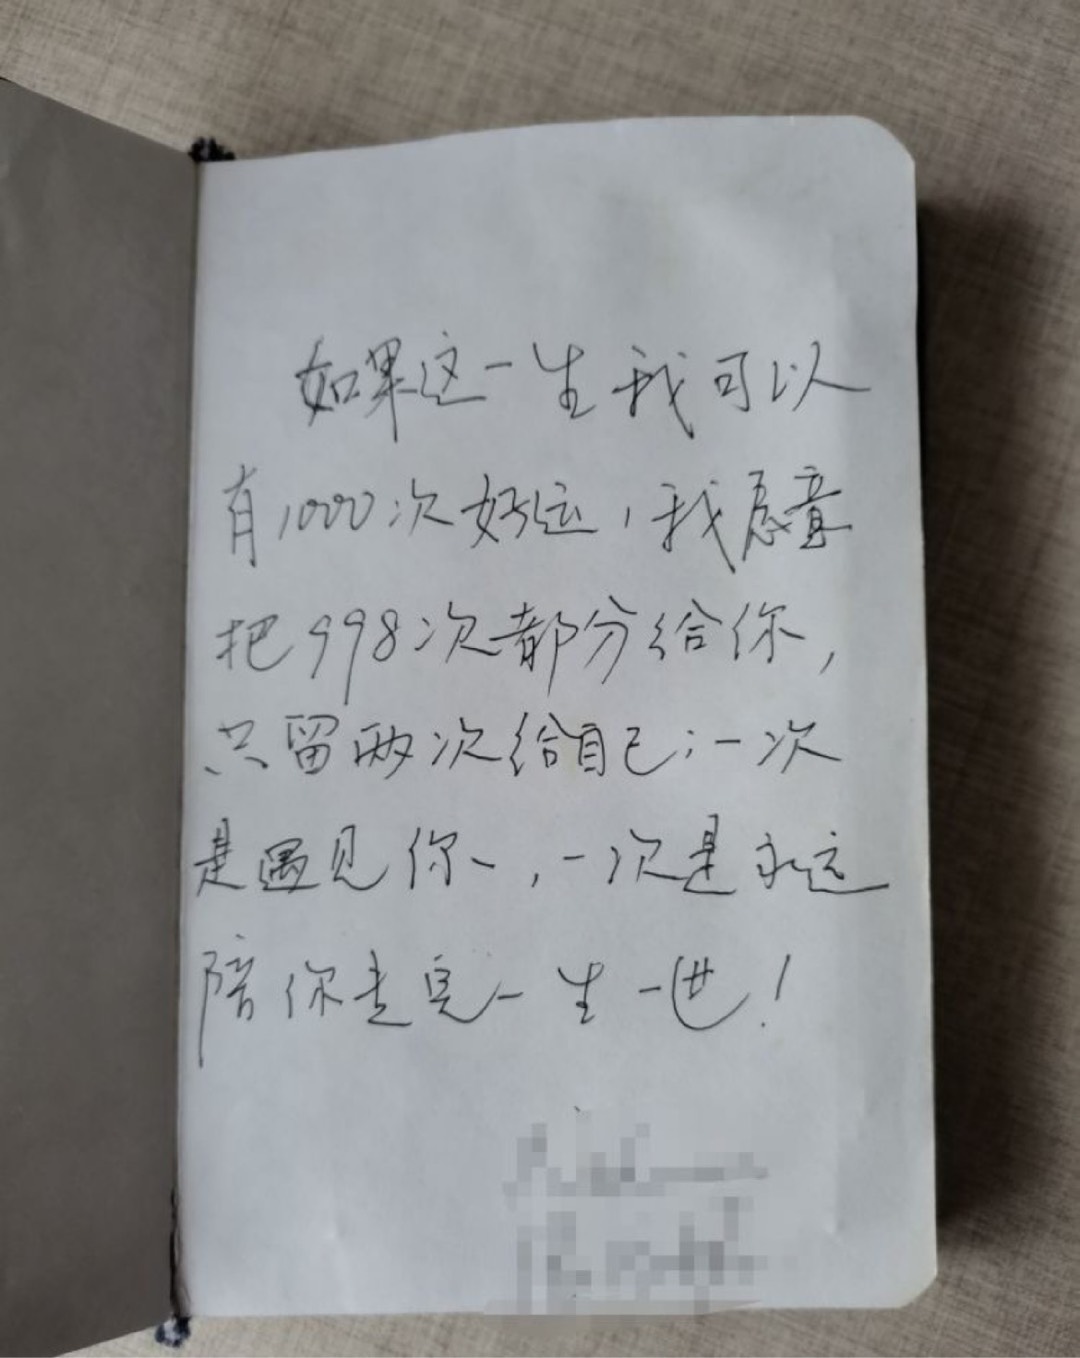 如果这一生我可以
有1000次好运，我愿意
把998次都分给你，
只留两次给自己：一次
是遇见你、，一次是永远
陪你走完一生一世！